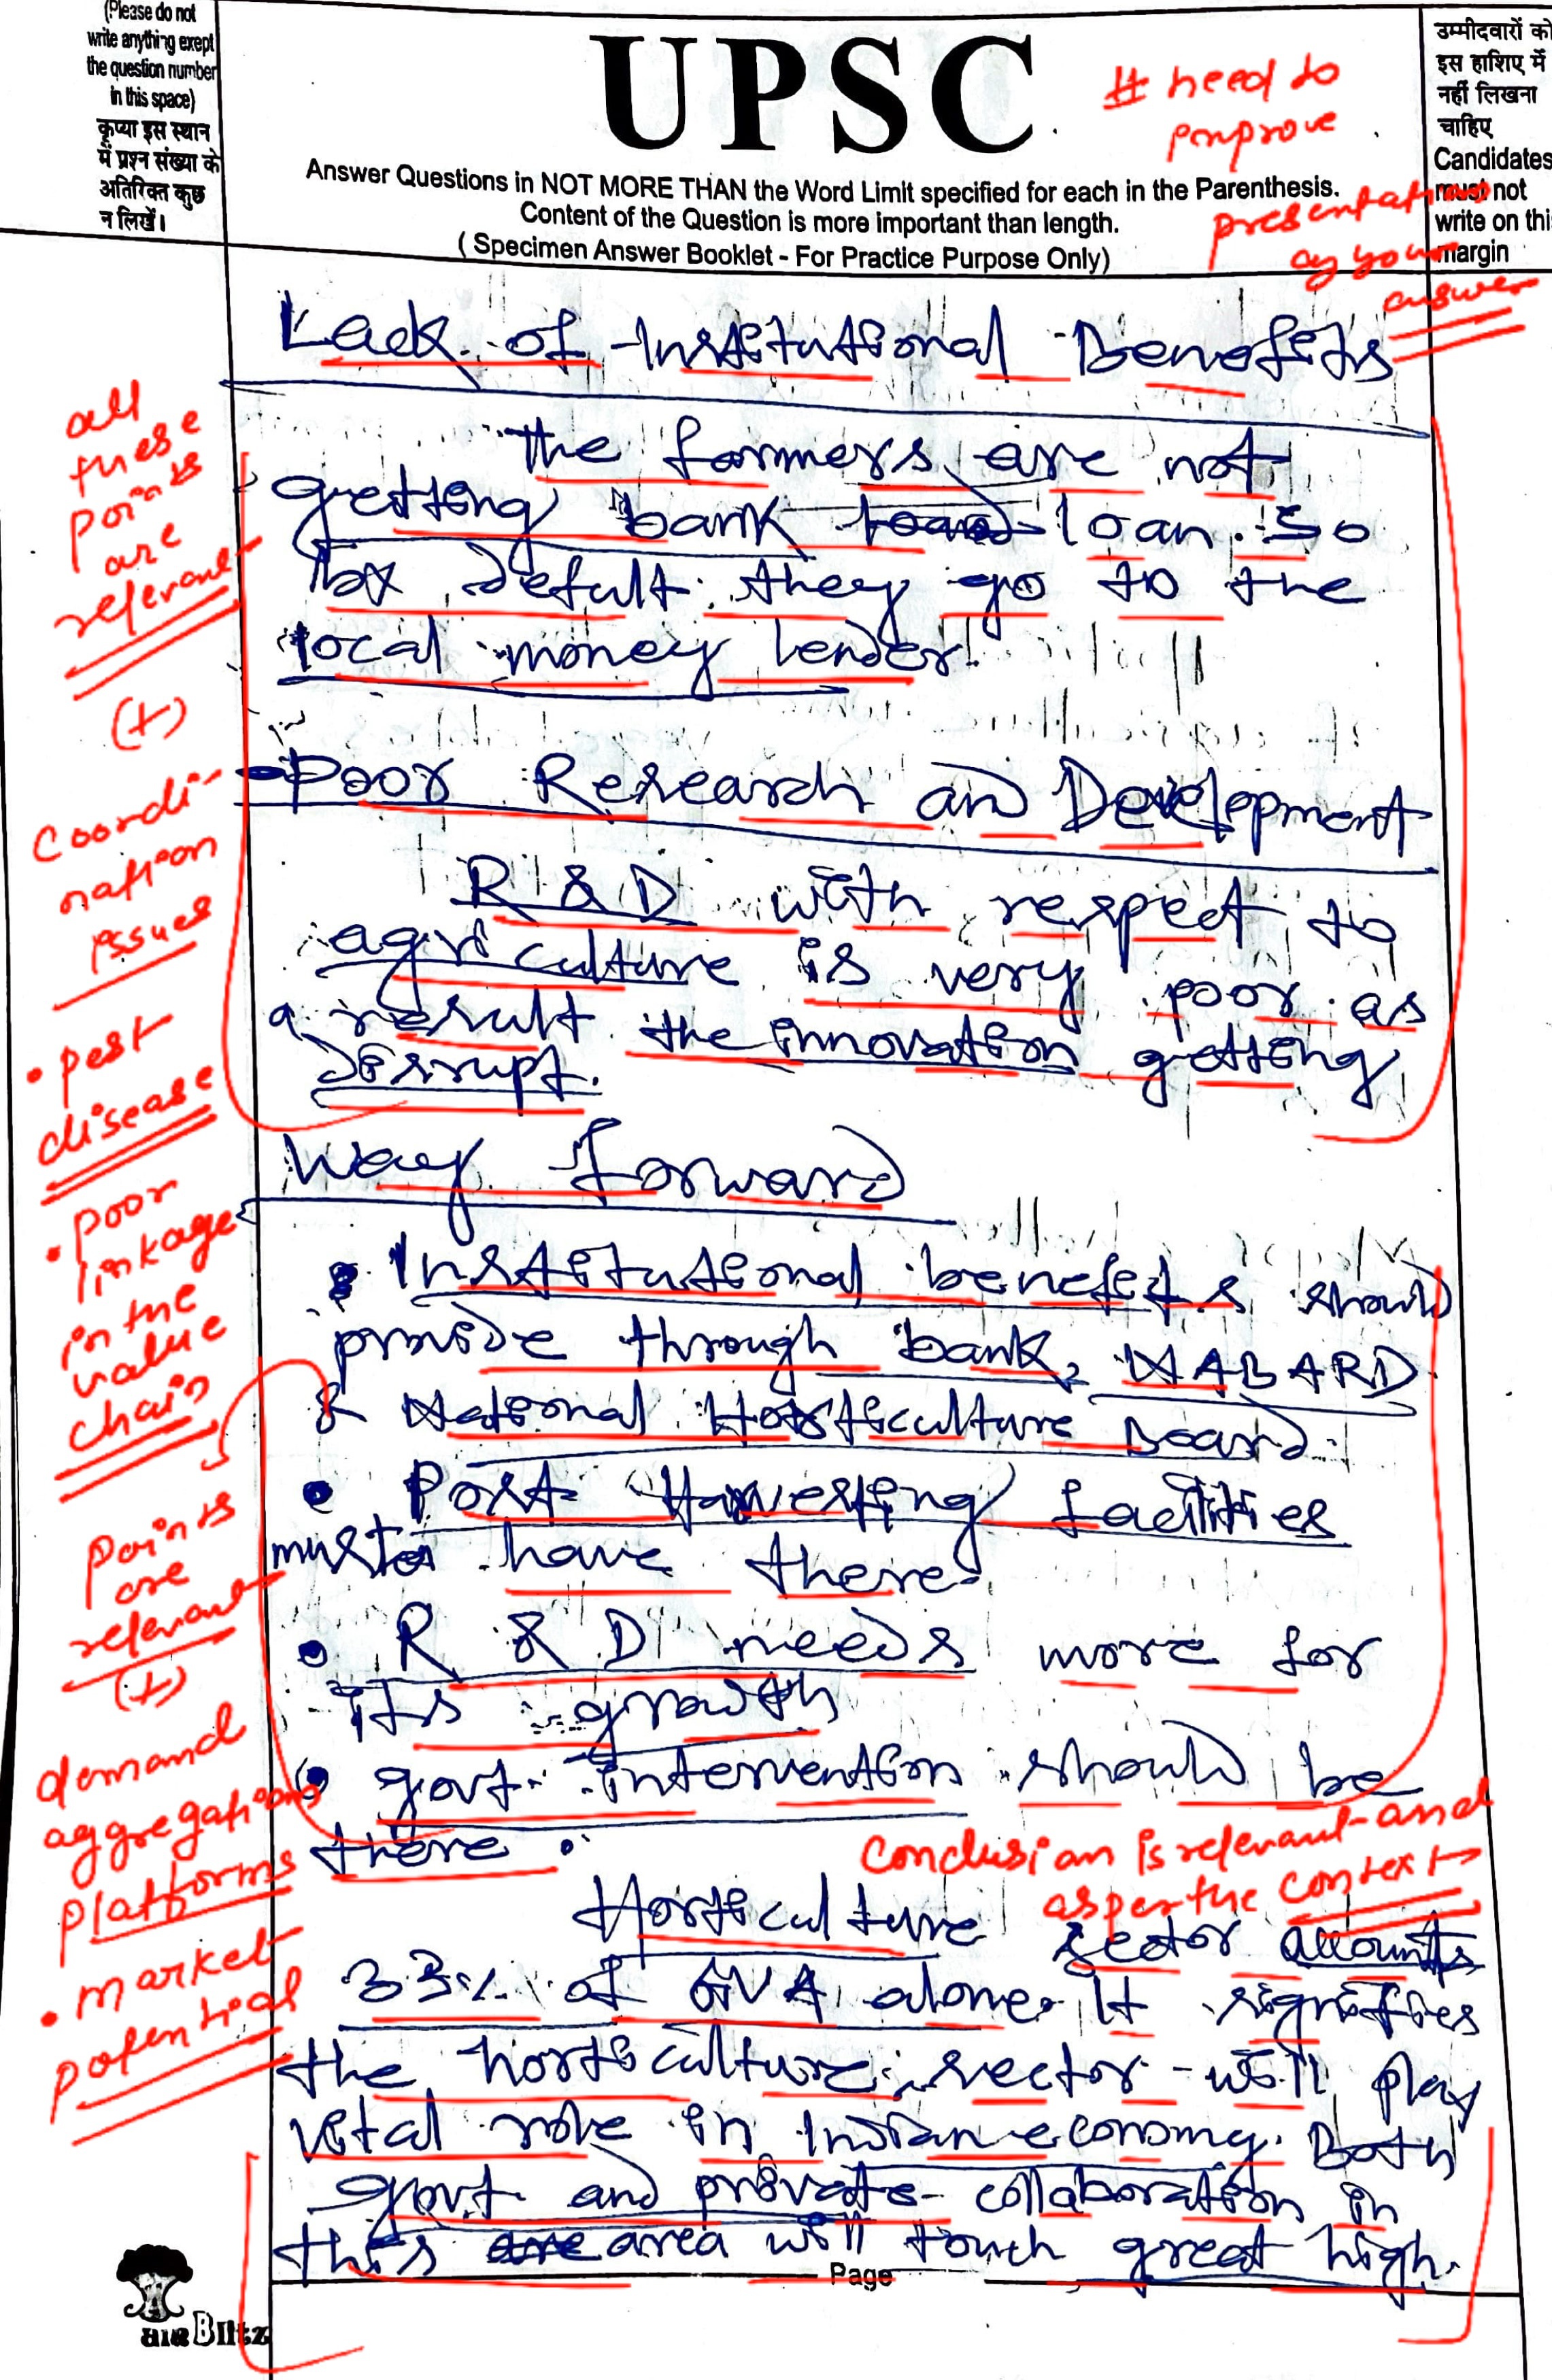 (Please do not
write anything exept
the question number
in this space)
कृप्या इस स्थान
में प्रश्न संख्या के
अतिरिक्त कुछ
न लिखें।
UPSC
Answer Questions in NOT MORE THAN the Word Limit specified for each in the Parenthesis.
Content of the Question is more important than length.
( Specimen Answer Booklet - For Practice Purpose Only)
उम्मीदवारों को
इस हाशिए में
नहीं लिखना
चाहिए
Candidates
must not
write on this
margin
# need to
improve
presentation
of your
answer
Lack of Institutional Benefits
The farmers are not
getting bank loan. So
by defult they go to the
local money lender.
Poor Research and Development
R & D with respect to
agriculture is very poor. as
a result the innovation getting
disrupt.
Way Forward
• Institutional benefits should
provide through bank, NABARD
& National Horticulture Board.
• Post Harvesting facilities
must have there.
• R & D needs more for
its growth
• govt. intervention should be
there.
Horticulture sector accounts
33% of GVA alone. It signifies
the horticulture sector will play
vital role in Indian economy. Both
govt and private collaboration in
this area will touch great high.
all
these
points
are
relevant
(+)
Coordi-
nation
issues
• pest
disease
• poor
linkage
in the
value
chain
points
are
relevant
(+)
demand
aggregations
platforms
• market
potential
Conclusion is relevant and
as per the context
Page
Blitz